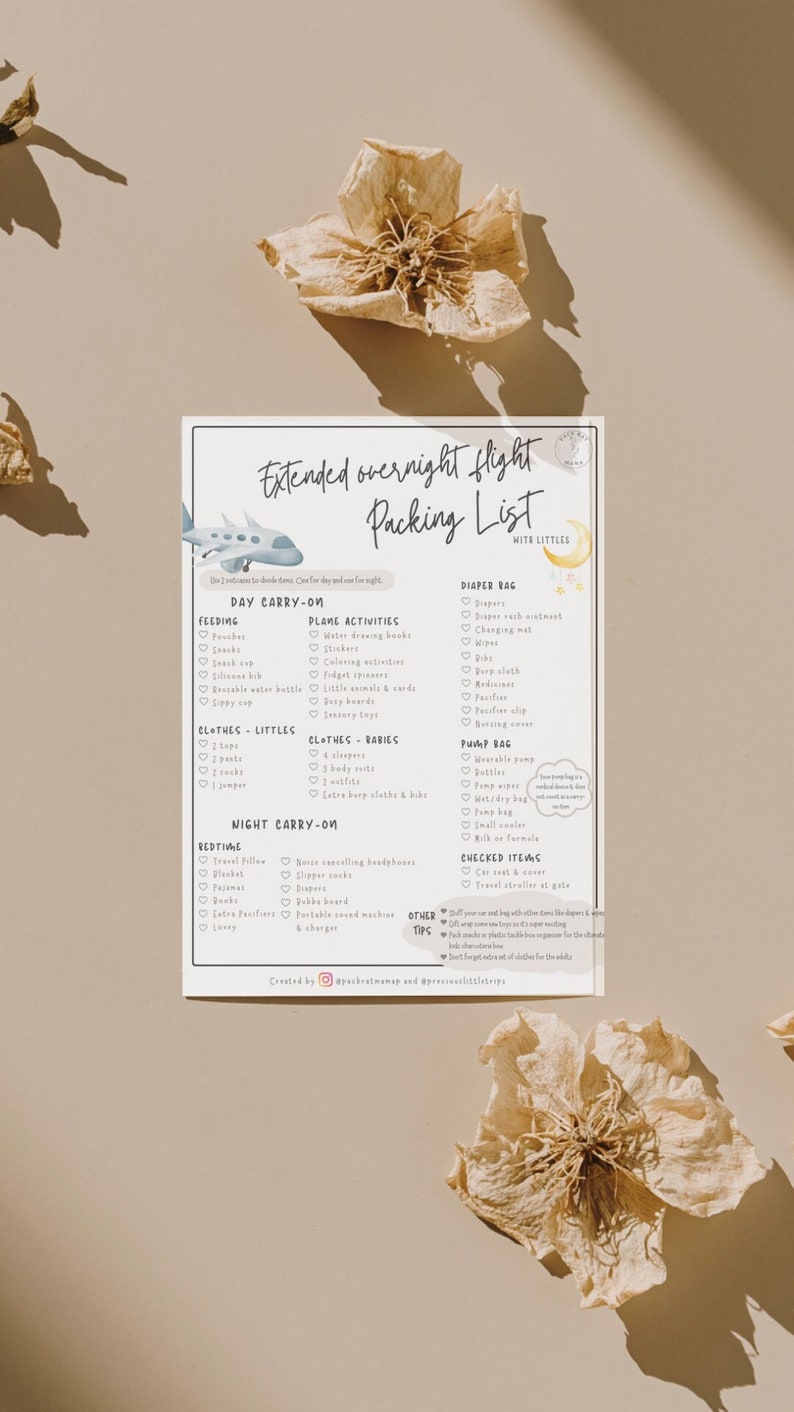 Extended overnight flight
Packing List
WITH LITTLES
PACK RAT
MAMA
Use 2 suitcases to divide items. One for day and one for night.
DAY CARRY-ON
FEEDING
Pouches
Snacks
Snack cup
Silicone bib
Reusable water bottle
Sippy cup
PLANE ACTIVITIES
Water drawing books
Stickers
Coloring activities
Fidget spinners
Little animals & cards
Busy boards
Sensory toys
CLOTHES - LITTLES
2 tops
2 pants
2 socks
1 jumper
CLOTHES - BABIES
4 sleepers
3 body suits
2 outfits
Extra burp cloths & bibs
NIGHT CARRY-ON
BEDTIME
Travel Pillow
Blanket
Pajamas
Books
Extra Pacifiers
Lovey
Noise cancelling headphones
Slipper socks
Diapers
Bubba board
Portable sound machine
& charger
DIAPER BAG
Diapers
Diaper rash ointment
Changing mat
Wipes
Bibs
Burp cloth
Medicines
Pacifier
Pacifier clip
Nursing cover
PUMP BAG
Wearable pump
Bottles
Pump wipes
Wet/dry bag
Pump bag
Small cooler
Milk or formula
Your pump bag is a
medical device & does
not count as a carry-
on item
CHECKED ITEMS
Car seat & cover
Travel stroller at gate
OTHER
TIPS
Stuff your car seat bag with other items like diapers & wipes
Gift wrap some new toys so it's super exciting
Pack snacks in plastic tackle box organizer for the ultimate
kids charcuterie box
Don't forget extra set of clothes for the adults
Created by @packratmamap and @preciouslittletrips